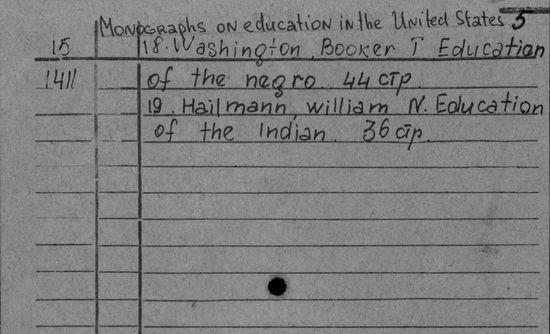 Monographs on education in the United States 5
15 18. Washington, Booker T Education
1411 of the negro. 44 стр.
19. Hailmann, william N. Education
of the Indian. 36 стр.